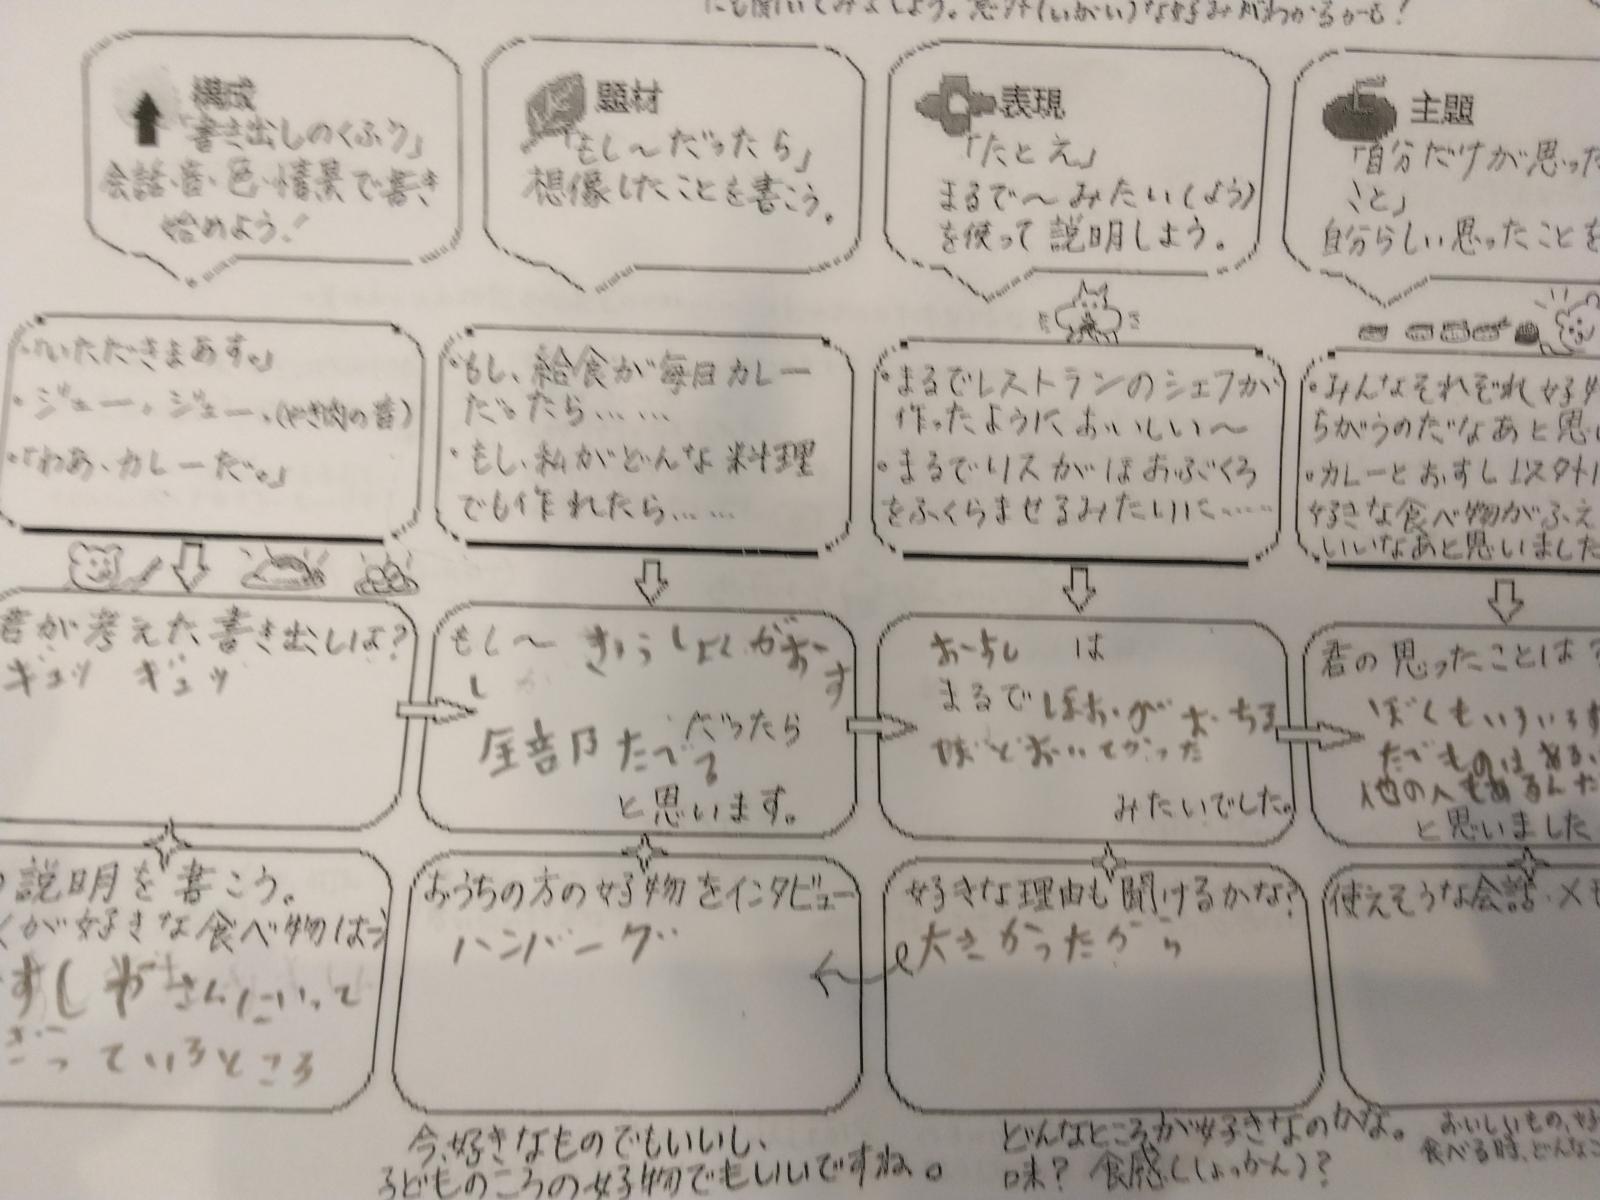 にも聞いてみましょう。意外(いがい)な好みがわかるかも!
構成
「書き出しのくふう」
会話・音・色・情景で書き
始めよう!
題材
「もし〜だったら」
想像したことを書こう。
表現
「たとえ」
まるで〜みたい(よう)
を使って説明しよう。
主題
「自分だけが思った
こと」
自分らしい思ったことを
・「いただきまあす。」
・ジュー。ジュー。(やき肉の音)
・「わあ、カレーだ。」
・もし、給食が毎日カレー
だったら……
・もし、私がどんな料理
でも作れたら……
・まるでレストランのシェフが
作ったようにおいしい〜
・まるでリスがほおぶくろ
をふくらませるみたいに……
・みんなそれぞれ好き
ちがうのだなあと思い
・カレーとおすし以外
好きな食べ物がふえ
いいなあと思いました
君が考えた書き出しは?
ギュッ ギュッ
もし〜 きゅうしょくがおー
す
し
だったら
全部たべる
と思います。
は
まるでほおがおちる
ほどおいしかった
みたいでした。
君の思ったことは?
ぼくもいろいろす
たべものはある
他の人もあるんだ
と思いました
説明を書こう。
くが好きな食べ物は
すしやさんにいって
っているところ
おうちの方の好物をインタビュー
ハンバーグ
好きな理由も聞けるかな?
大きかったから
使えそうな会話・メモ
今、好きなものでもいいし、
子どものころの好物でもいいですね。
どんなところが好きなのかな。
味? 食感(しょっかん)?
おいしいもの、好
食べる時、どんなこ